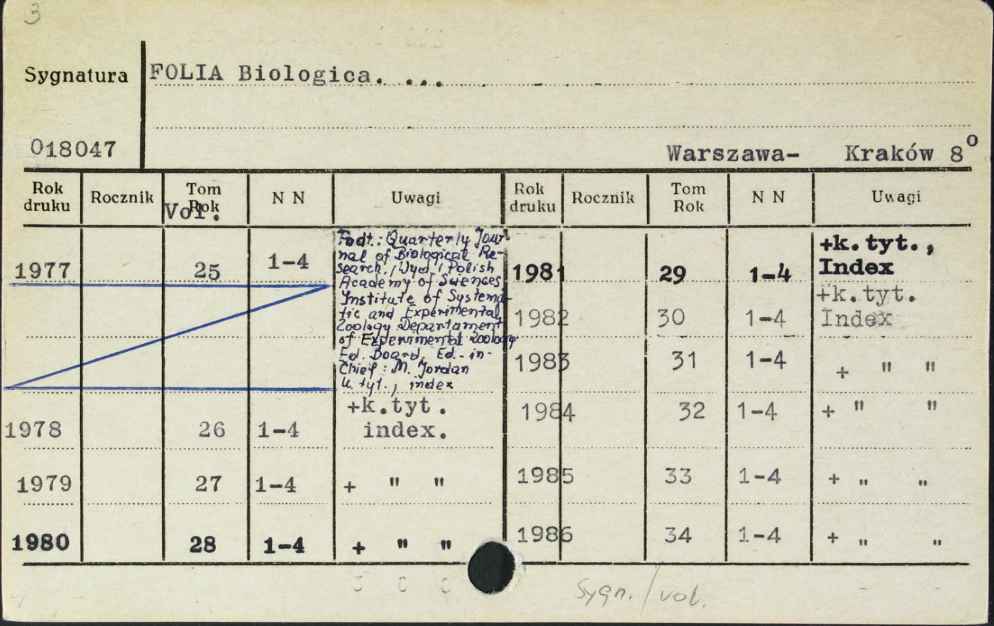 3
Sygnatura FOLIA Biologica. ...
018047
Warszawa- Kraków 8°
Rok druku Rocznik Tom Rok Vol. N N Uwagi Rok druku Rocznik Tom Rok N N Uwagi
1977 25 1-4
Podt.: Quarterly Jour
nal of Biological Re-
search., Wyd.: Polish
Academy of Sciences
Institute of Systema-
tic and Experimental
Zoology Departament
of Experimental Zoology
Ed. Board, Ed.-in-
Chief: M. Jordan
k. tyt., index
1978 26 1-4 +k.tyt.
index.
1979 27 1-4 + " "
1980 28 1-4 + " "
1981 29 1-4 +k.tyt.,
Index
1982 30 1-4 +k.tyt.
Index
1983 31 1-4 + " "
1984 32 1-4 + " "
1985 33 1-4 + " "
1986 34 1-4 + " "
Sygn./vol.